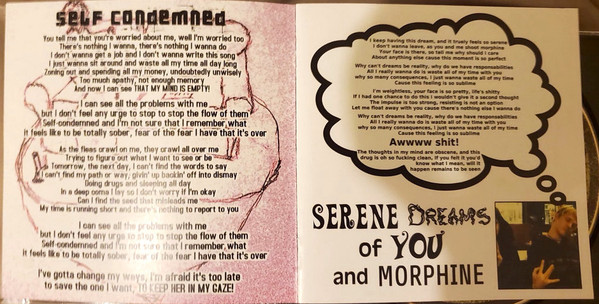 SELF CONDEMNED
You tell me that you're worried about me, well I'm worried too
There's nothing I wanna, there's nothing I wanna do
I don't wanna get a job and I don't wanna write this song
I just wanna sit around and waste all my time all day long
Zoning out and spending all my money, undoubtedly unwisely
Too much apathy, not enough memory
And now I can see THAT MY MIND IS EMPTY!
I can see all the problems with me
but I don't feel any urge to stop to stop the flow of them
Self-condemned and I'm not sure that I remember what
it feels like to be totally sober, fear of the fear I have that it's over
As the fleas crawl on me, they crawl all over me
Trying to figure out what I want to see or be
Tomorrow, the next day, I can't find the words to say
If I can't find my path or way, givin' up bookin' off into dismay
Doing drugs and sleeping all day
In a deep coma I lay so I don't worry if I'm okay
Can I find the seed that misleads me
My time is running short and there's nothing to report to you
I can see all the problems with me
but I don't feel any urge to stop to stop the flow of them
Self-condemned and I'm not sure that I remember what
it feels like to be totally sober, fear of the fear I have that it's over
I've gotta change my ways, I'm afraid it's too late
to save the one I want, TO KEEP HER IN MY GAZE!
I keep having this dream, and it truely feels so serene
I don't wanna leave, as you and me shoot morphine
Your face is there, so tell me why should I care
About anything else cause this moment is so perfect
Why can't dreams be reality, why do we have responsibilities
All I really wanna do is waste all of my time with you
why so many consequences, I just wanna waste all of my time
Cause this feeling is so sublime
I'm weightless, your face is so pretty, life's stility
If I had one chance to do this I wouldn't give it a second thought
The impulse is too strong, resisting is not an option
Let me float away with you cause there's nothing else I wanna do
Why can't dreams be reality, why do we have responsabilities
All I really wanna do is waste all of my time with you
why so many consequences, I just wanna waste all of my time
Cause this feeling is so sublime
Awwww shit!
The thoughts in my mind are obscene, and this
drug is oh so fucking clean, if you felt it you'd
know what I mean, will it
happen remains to be seen
SERENE DREAMS
of YOU
and MORPHINE